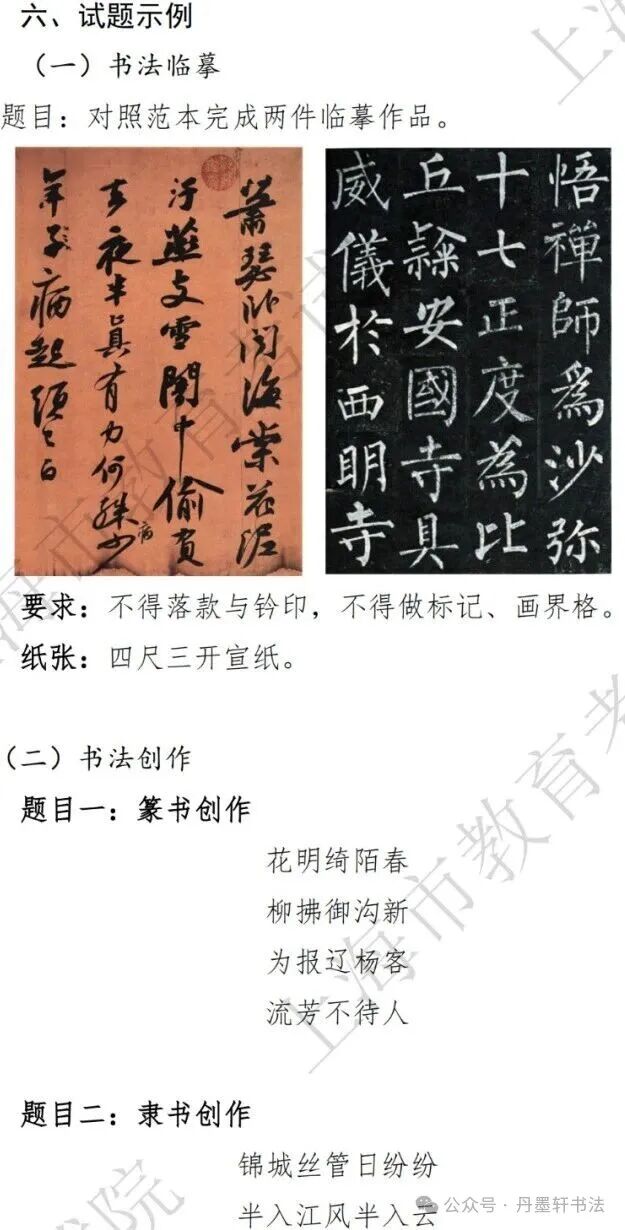 六、试题示例
（一）书法临摹
题目：对照范本完成两件临摹作品。
萧瑟卧闻海棠花泥
汙燕支雪闇中偷負
去夜半真有力何殊少
年子病起須已白
病
悟禪師爲沙弥
十七正度為比
丘𨽻安國寺具
威儀於西明寺
要求：不得落款与钤印，不得做标记、画界格。
纸张：四尺三开宣纸。
（二）书法创作
题目一：篆书创作
花明绮陌春
柳拂御沟新
为报辽杨客
流芳不待人
题目二：隶书创作
锦城丝管日纷纷
半入江风半入云
上海市教育考试院
公众号·丹墨轩书法